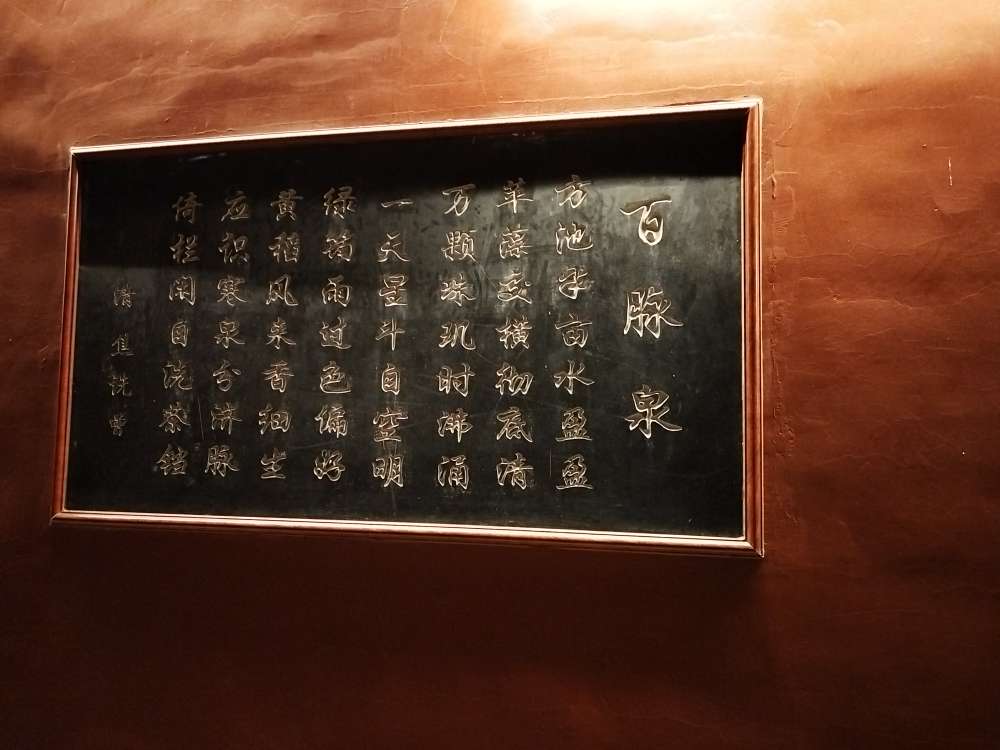 百脉泉
方池半亩水盈盈
苹藻交横彻底清
万颗珠玑时沸涌
一天星斗自空明
绿筠雨过色偏好
黄稻风来香细生
应识寒泉分济脉
倚栏闲自洗茶铛
清 焦